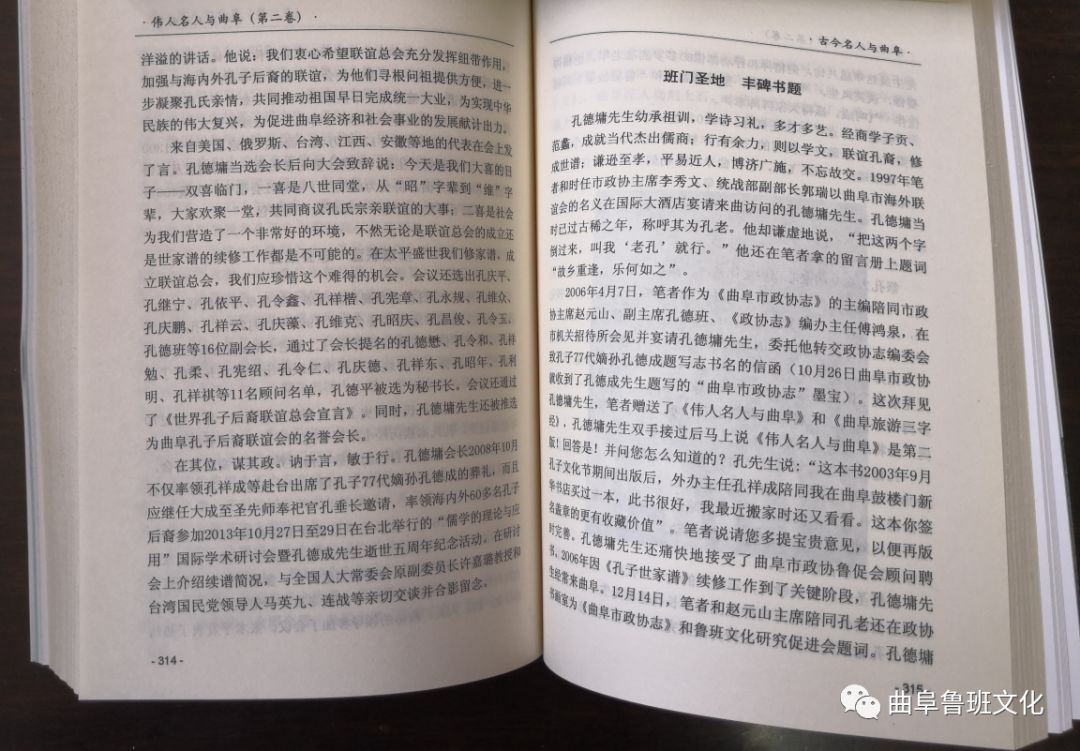 ·伟人名人与曲阜（第二卷）·
洋溢的讲话。他说：我们衷心希望联谊总会充分发挥纽带作用，
加强与海内外孔子后裔的联谊，为他们寻根问祖提供方便，进一
步凝聚孔氏亲情，共同推动祖国早日完成统一大业，为实现中华
民族的伟大复兴，为促进曲阜经济和社会事业的发展献计出力。
来自美国、俄罗斯、台湾、江西、安徽等地的代表在会上发
了言。孔德墉当选会长后向大会致辞说：今天是我们大喜的日
子——双喜临门，一喜是八世同堂，从“昭”字辈到“维”字
辈，大家欢聚一堂，共同商议孔氏宗亲联谊的大事；二喜是社会
为我们营造了一个非常好的环境，不然无论是联谊总会的成立还
是世家谱的续修工作都是不可能的。在太平盛世我们修家谱，成
立联谊总会，我们应珍惜这个难得的机会。会议还选出孔庆平、
孔继宁、孔依平、孔令鑫、孔祥楷、孔宪章、孔永规、孔维众、
孔庆鹏、孔祥云、孔庆藻、孔维克、孔昭庆、孔昌俊、孔令玉、
孔德班等16位副会长，通过了会长提名的孔德懋、孔令和、孔祥
勉、孔柔、孔宪绍、孔令仁、孔庆德、孔祥东、孔昭年、孔利
明、孔祥祺等11名顾问名单，孔德平被选为秘书长。会议还通过
了《世界孔子后裔联谊总会宣言》。同时，孔德墉先生还被推选
为曲阜孔子后裔联谊会的名誉会长。
在其位，谋其政。讷于言，敏于行。孔德墉会长2008年10月
不仅率领孔祥成等赴台出席了孔子77代嫡孙孔德成的葬礼，而且
应继任大成至圣先师奉祀官孔垂长邀请，率领海内外60多名孔子
后裔参加2013年10月27日至29日在台北举行的“儒学的理论与应
用”国际学术研讨会暨孔德成先生逝世五周年纪念活动。在研讨
会上介绍续谱简况，与全国人大常委会原副委员长许嘉璐教授和
台湾国民党领导人马英九、连战等亲切交谈并合影留念。
- 314 -
·古今名人与曲阜·
班门圣地 丰碑书题
孔德墉先生幼承祖训，学诗习礼，多才多艺。经商学子贡、
范蠡，成就当代杰出儒商；行有余力，则以学文，联谊孔裔，修
成世谱；谦逊至孝，平易近人，博济广施，不忘故交。1997年笔
者和时任市政协主席李秀文、统战部副部长郭瑞以曲阜市海外联
谊会的名义在国际大酒店宴请来曲访问的孔德墉先生。孔德墉当
时已过古稀之年，称呼其为孔老。他却谦虚地说，“把这两个字
倒过来，叫我‘老孔’就行。”他还在笔者拿的留言册上题词
“故乡重逢，乐何如之”。
2006年4月7日，笔者作为《曲阜市政协志》的主编陪同市政
协主席赵元山、副主席孔德班、《政协志》编办主任傅鸿泉，在
市机关招待所会见并宴请孔德墉先生，委托他转交政协志编委会
致孔子77代嫡孙孔德成题写志书名的信函（10月26日曲阜市政协
就收到了孔德成先生题写的“曲阜市政协志”墨宝）。这次拜见
孔德墉先生，笔者赠送了《伟人名人与曲阜》和《曲阜旅游三字
经》，孔德墉先生双手接过后马上说《伟人名人与曲阜》是第二
版！回答是！并问您怎么知道的？孔先生说：“这本书2003年9月
孔子文化节期间出版后，外办主任孔祥成陪同我在曲阜鼓楼门新
华书店买过一本，此书很好，我最近搬家时还又看看。这本你签
名盖章的更有收藏价值”。笔者说请您多提宝贵意见，以便再版
时完善。孔德墉先生还痛快地接受了曲阜市政协鲁促会顾问聘
书。2006年因《孔子世家谱》续修工作到了关键阶段，孔德墉先
生经常来曲阜。12月14日，笔者和赵元山主席陪同孔老还在政协
书画室为《曲阜市政协志》和鲁班文化研究促进会题词。孔德墉
- 315 -
曲阜鲁班文化